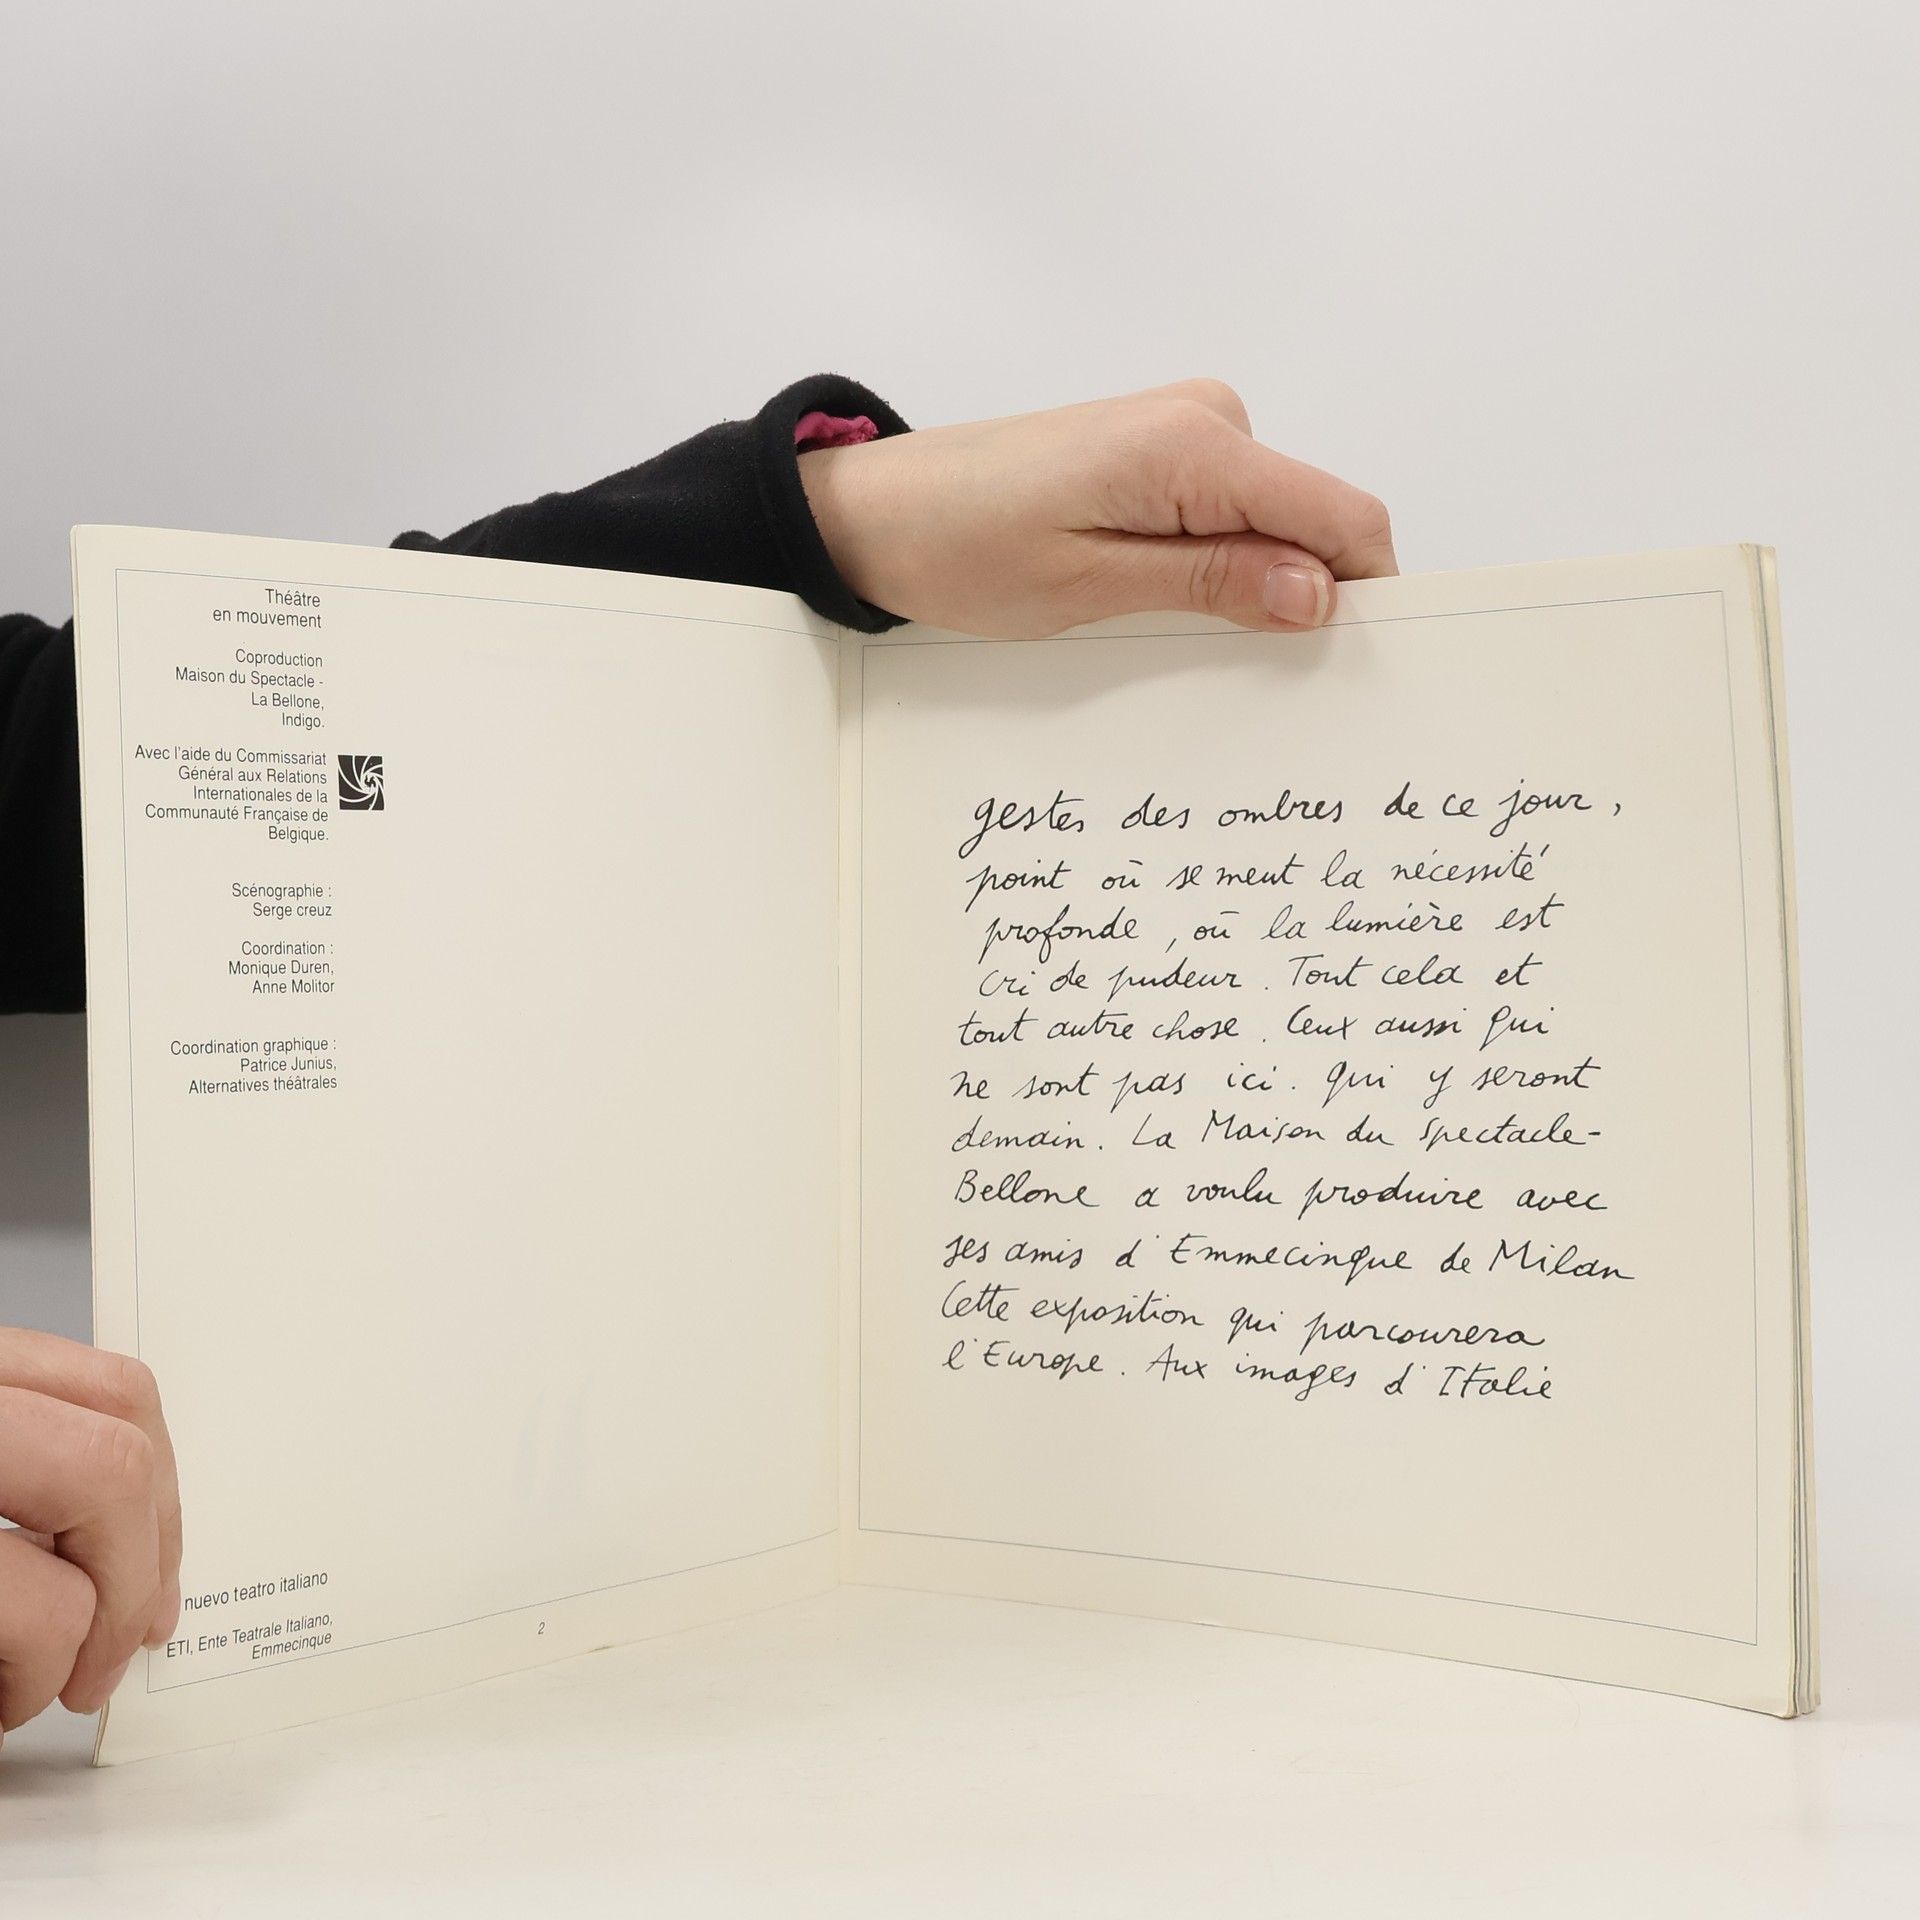 Théâtre
en mouvement
Coproduction
Maison du Spectacle -
La Bellone,
Indigo.
Avec l'aide du Commissariat
Général aux Relations
Internationales de la
Communauté Française de
Belgique.
Scénographie :
Serge creuz
Coordination :
Monique Duren,
Anne Molitor
Coordination graphique :
Patrice Junius,
Alternatives théâtrales
nuevo teatro italiano
ETI, Ente Teatrale Italiano,
Emmecinque
2
gestes des ombres de ce jour,
point où se meut la nécessité
profonde, où la lumière est
cri de pudeur. Tout cela et
tout autre chose. Ceux aussi qui
ne sont pas ici. qui y seront
demain. La Maison du Spectacle-
Bellone a voulu produire avec
ses amis d'Emmecinque de Milan
Cette exposition qui parcourera
l'Europe. Aux images d'Italie